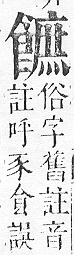 俗字舊註音
註呼豕食誤